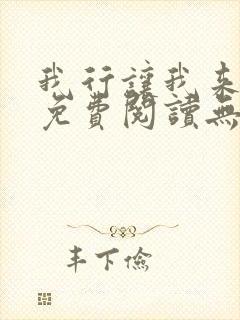 我行讓我来
免費閱讀無
丰下儉